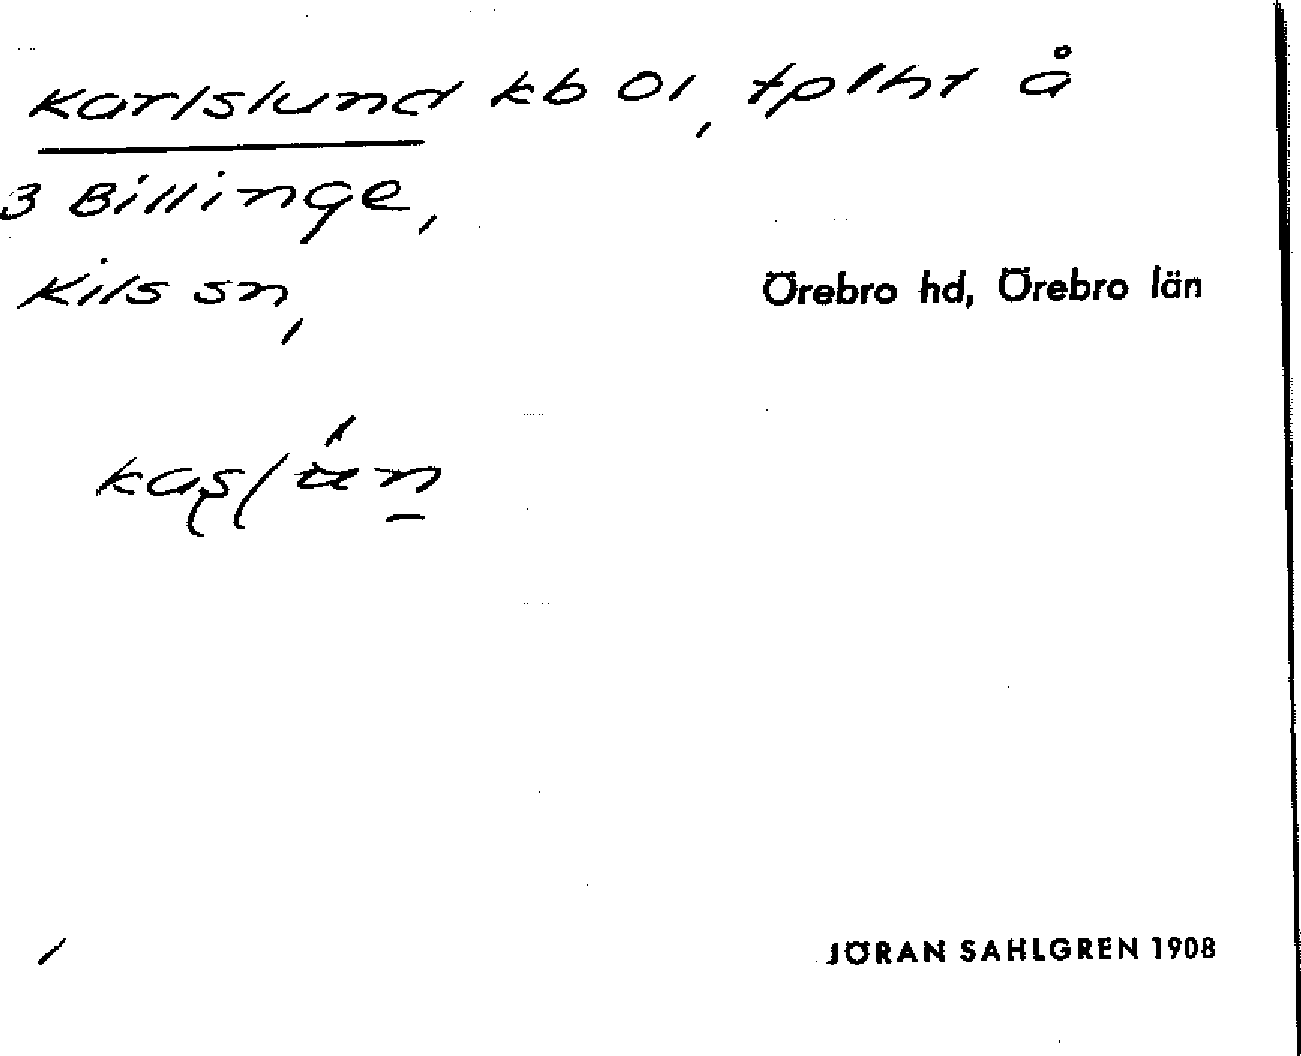 Karlslund kb 01, tplht å
3 Billinge,
Kils sn, Örebro hd, Örebro län
JÖRAN SAHLGREN 1908